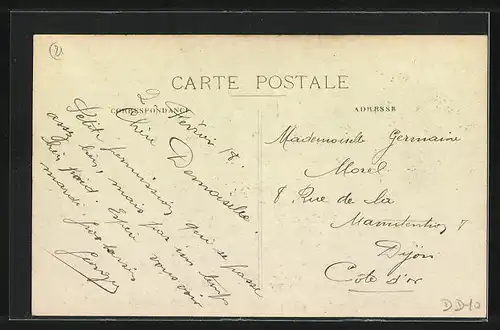 21
CARTE POSTALE
CORRESPONDANCE
ADRESSE
2 Février 18.
Chère Demoiselle.
Petite permission qui se passe
assez bien, mais par un temps
bien froid. Espère vous voir
mardi.
Georges
Mademoiselle Germaine
Morel
8 Rue de la
Manutention 8
Dijon
Côte d'or
DD40